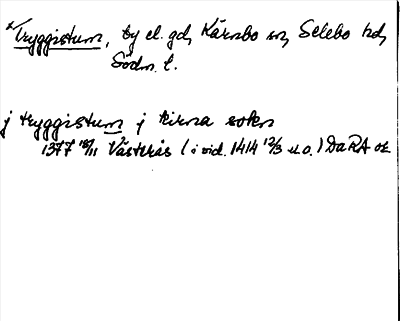 *Tryggistum, by el. gd, Kärnbo sn, Selebo hd,
Södm. l.
j tryggistum j kirna sokn
1377 18/11 Västerås (i vid. 1414 12/3 u.o.) DaRA or.